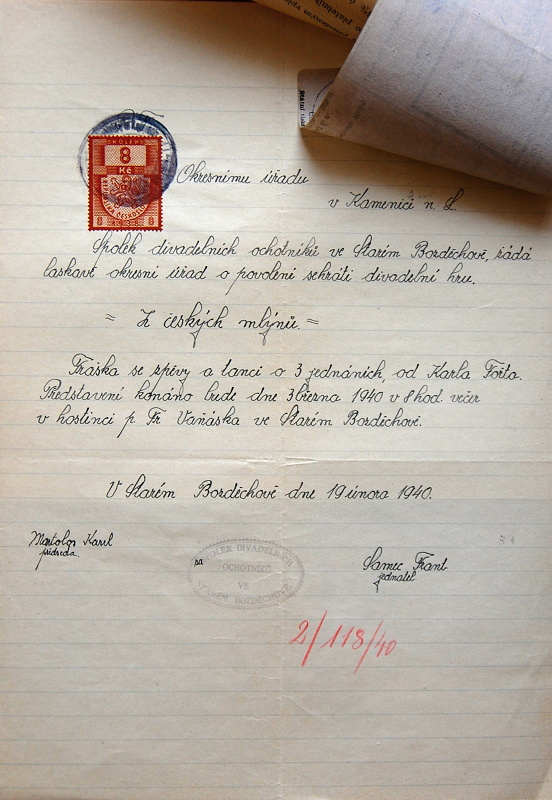 KOLEK
8
Kč
8 8
Okresnímu úřadu
v Kamenici n. L.
Spolek divadelních ochotníků ve Starém Bozděchově, žádá
laskavě okresní úřad o povolení sehráti divadelní hru.
= Z českých mlýnů. =
Fraška se zpěvy a tanci o 3 jednáních, od Karla Fořta.
Představení konáno bude dne 3 března 1940 v 8 hod. večer
v hostinci p. Fr. Vaňáska ve Starém Bozděchově.
V Starém Bozděchově dne 19 února 1940.
Karel
předseda.
za
SPOLEK DIVADELNÍCH
OCHOTNÍKŮ
VE
STARÉM BOZDĚCHOVĚ
Samec Frant
jednatel
2/118/40